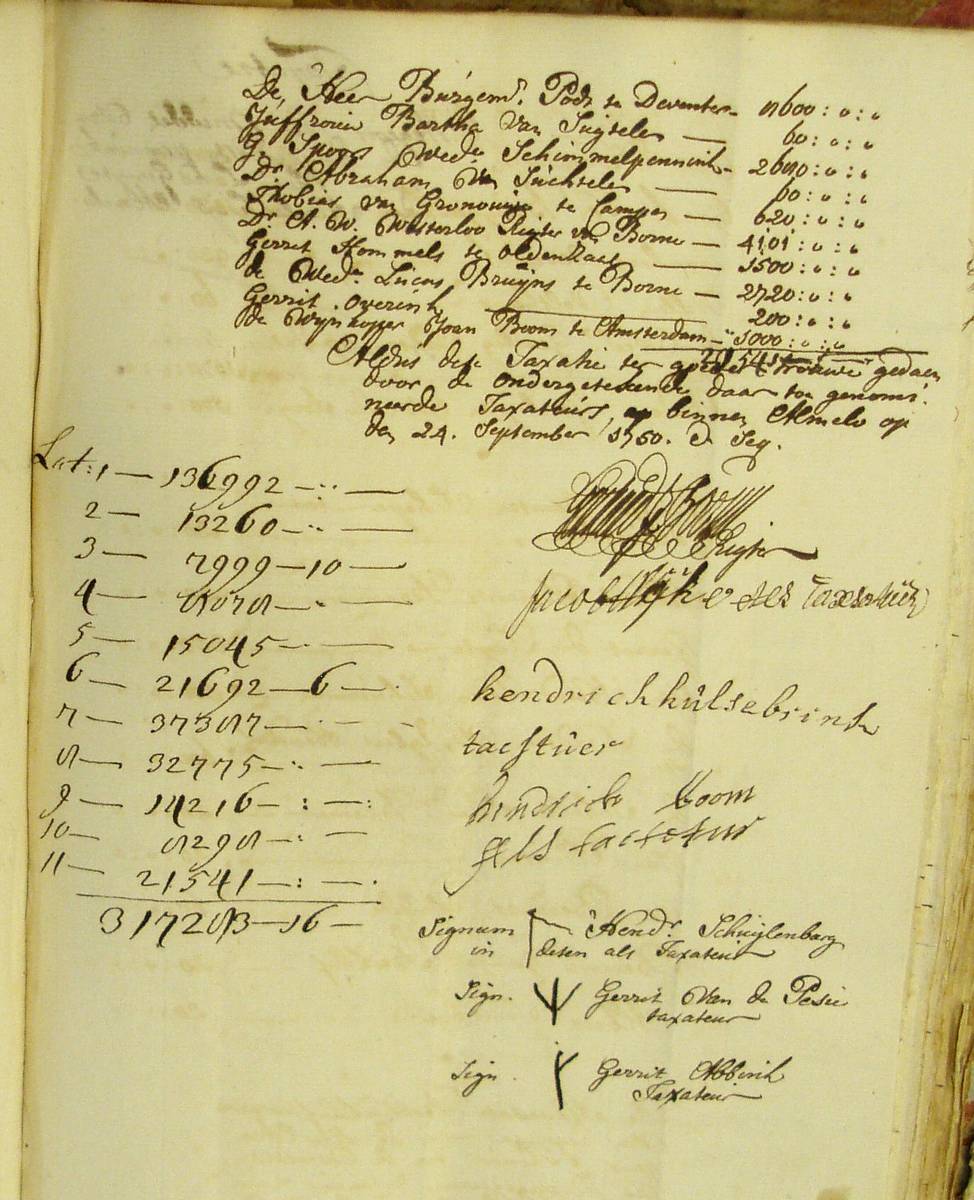 De Heer Burgemr. Podt te Deventer — 8600 : 0 : 0
Juffrouw Bartha Van Sugtelen — 60 : 0 : 0
G. Spoor Wede Schimmelpennink — 2680 : 0 : 0
Dr. Abraham Van Suchtelen — 60 : 0 : 0
Thobias van Gronouw te Campen — 620 : 0 : 0
Dr. A. W. Westerloo Rigter van Borne — 4101 : 0 : 0
Gerrit Hommels te Oldenzaal — 1500 : 0 : 0
de Wede. Lucas Bruijns te Borne — 2720 : 0 : 0
Gerrit Overink — 200 : 0 : 0
de Wijnkoper Joan Boom te Amsterdam — 1000 : 0 : 0
21541
Aldus dese Taxatie ter goeder trouwe gedaen
door de ondergetekende daar toe genomi-
neerde Taxateurs, binnen Almelo op
den 24. September 1750.
Lat: 1 — 136992 —
2 — 13260 —
3 — 7999 — 10 —
4 — 8078 —
5 — 15045 —
6 — 21692 — 6 —
7 — 37387 —
8 — 32775 —
9 — 14216 —
10 — 8298 —
11 — 21541 —
317283 — 16 —
Boom
Rigter
Jacob als
hendrick hülsebrinck
tacstüer
hindrick Boom
als tactetur
Signum Hendr. Schuijlenbarg
in desen als Taxateur
Sign. Gerrit Van de Pesie
taxateur
Sign Gerrit Abbink
Taxateur